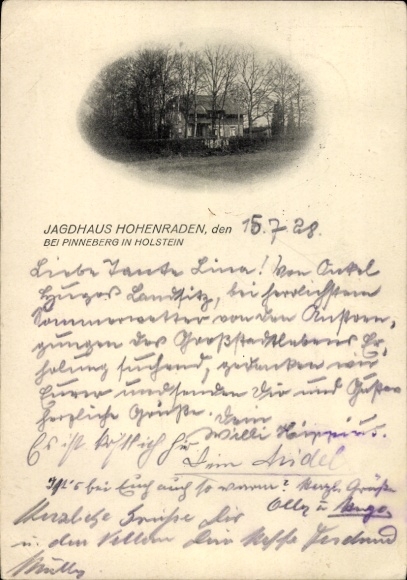 JAGDHAUS HOHENRADEN, den 15.7.28.
BEI PINNEBERG IN HOLSTEIN
Liebe Tante Lina! Von Onkel
Hugos Landsitz, bei herrlichstem
Sommerwetter von den Anstren-
gungen des Großstadtlebens Er-
holung suchend, gedenken wir
Eurer und senden Dir und
herzliche Grüße. Dein
Willi
Es ist köstlich hier
Dein
Ist's bei Euch auch so warm? Herzl. Grüße
Olly u
Herzliche Grüße Dir
u. den Dein Neffe Ferdinand